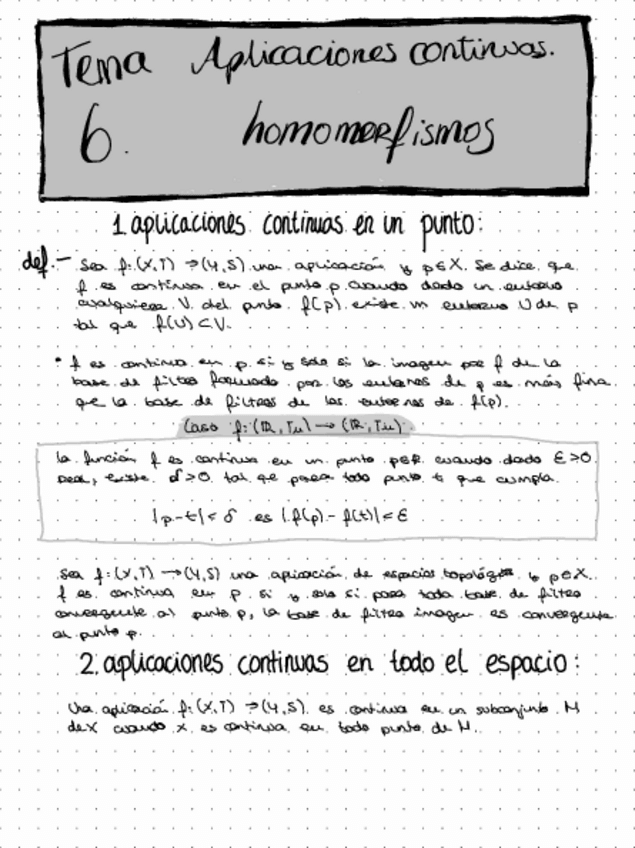 Tema Aplicaciones continuas.
6. homomorfismos
1. aplicaciones continuas en un punto:
def.- Sea f: (X,T) → (Y,S) una aplicación y p∈X. Se dice que
f es continua en el punto p cuando dado un entorno
cualquiera V del punto f(p) existe un entorno U de p
tal que f(U) ⊂ V.
• f es continua en p si y solo si la imagen por f de la
base de filtro formado por los entornos de p es más fina
que la base de filtros de los entornos de f(p).
Caso f: (ℝ, Tu) → (ℝ, Tu)
la función f es continua en un punto p∈ℝ cuando dado ε>0
real, existe δ>0 tal que para todo punto t que cumpla
|p-t| < δ es |f(p) - f(t)| < ε
Sea f: (X,T) → (Y,S) una aplicación de espacios topológ y p∈X.
f es continua en p si y solo si para toda base de filtro
convergente al punto p, la base de filtro imagen es convergente
al punto p.
2. aplicaciones continuas en todo el espacio:
Una aplicación f: (X,T) → (Y,S) es continua en un subconjunto M
de X cuando x es continua en todo punto de M.